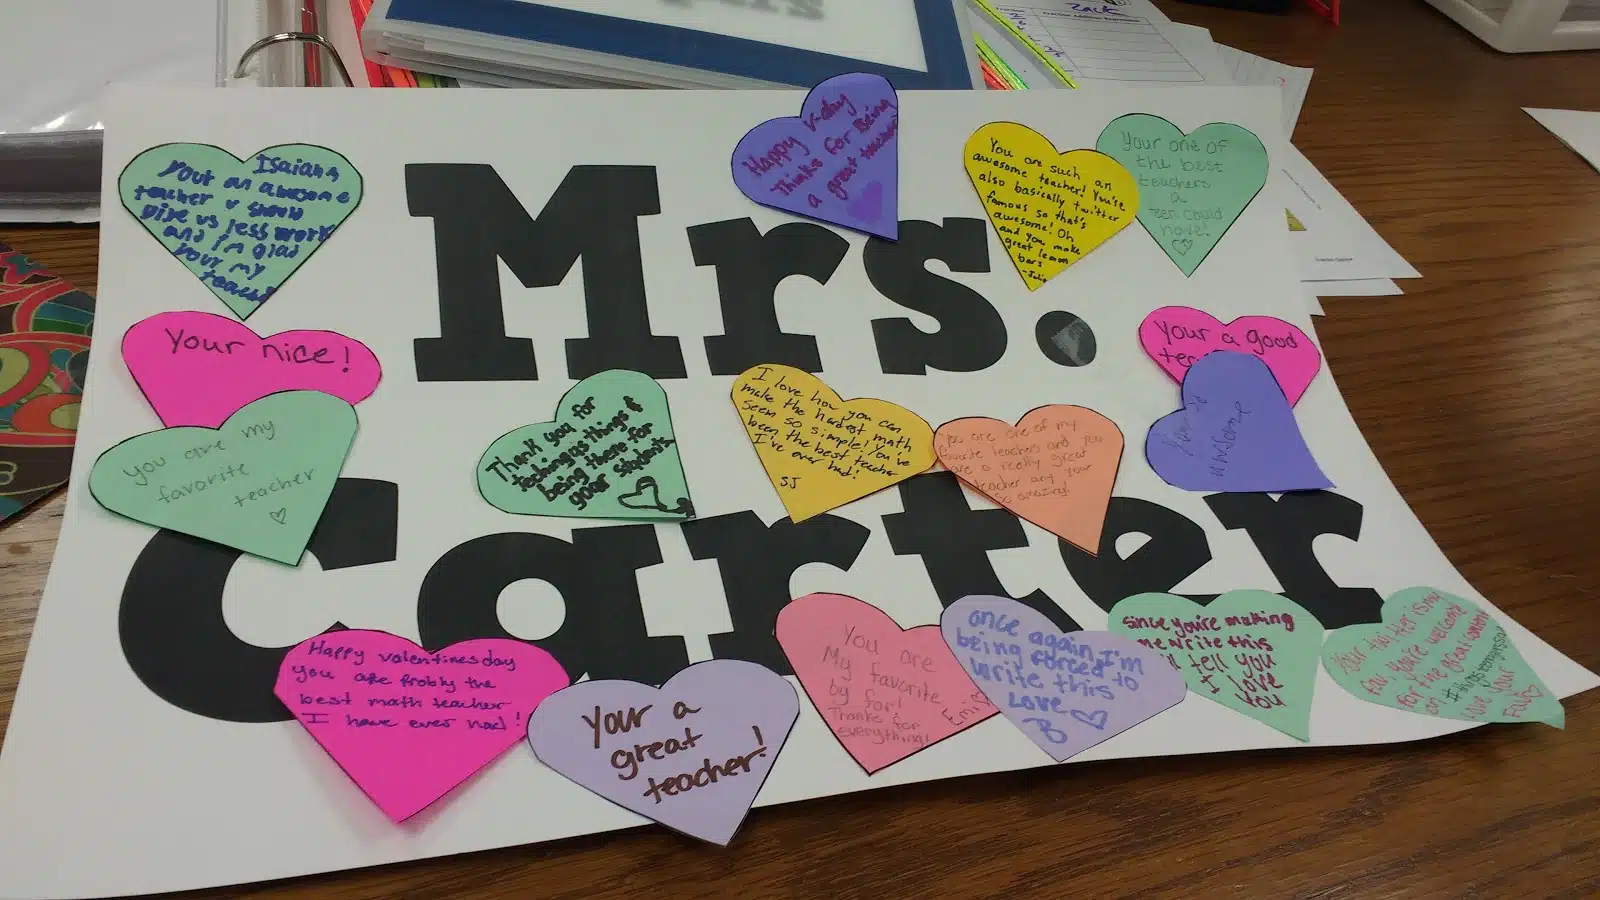 Zack
Mrs.
Carter
Isaiah
your an awesome
teacher v should
give us less work
and I'm glad
your my
Happy v-day
Thinks for Being
a great teacher
You are such an
awesome teacher! You're
also basically twitter
famous so that's
awesome! Oh
and you make
great lemon
bars
-Julie
Your one of
the best
teachers
a
teen could
have!
Your nice!
you are my
favorite
teacher
Thank you for
teching as things &
being there for
your students.
I love how you can
make the hardest math
seem so simple! You've
been the best teacher
I've ever had!
SJ
You are one of my
favorite teachers and you
are a really great
teacher and your
so amazing!
Your a good
awesome
Happy valentines day
you are probly the
best math teacher
I have ever had!
Your a
great
teacher!
You are
My favorite
by far!
Thanks for
everything!
once again I'm
being forced to
write this
Love
B
since you're making
me write this
I'll tell you
I love
you